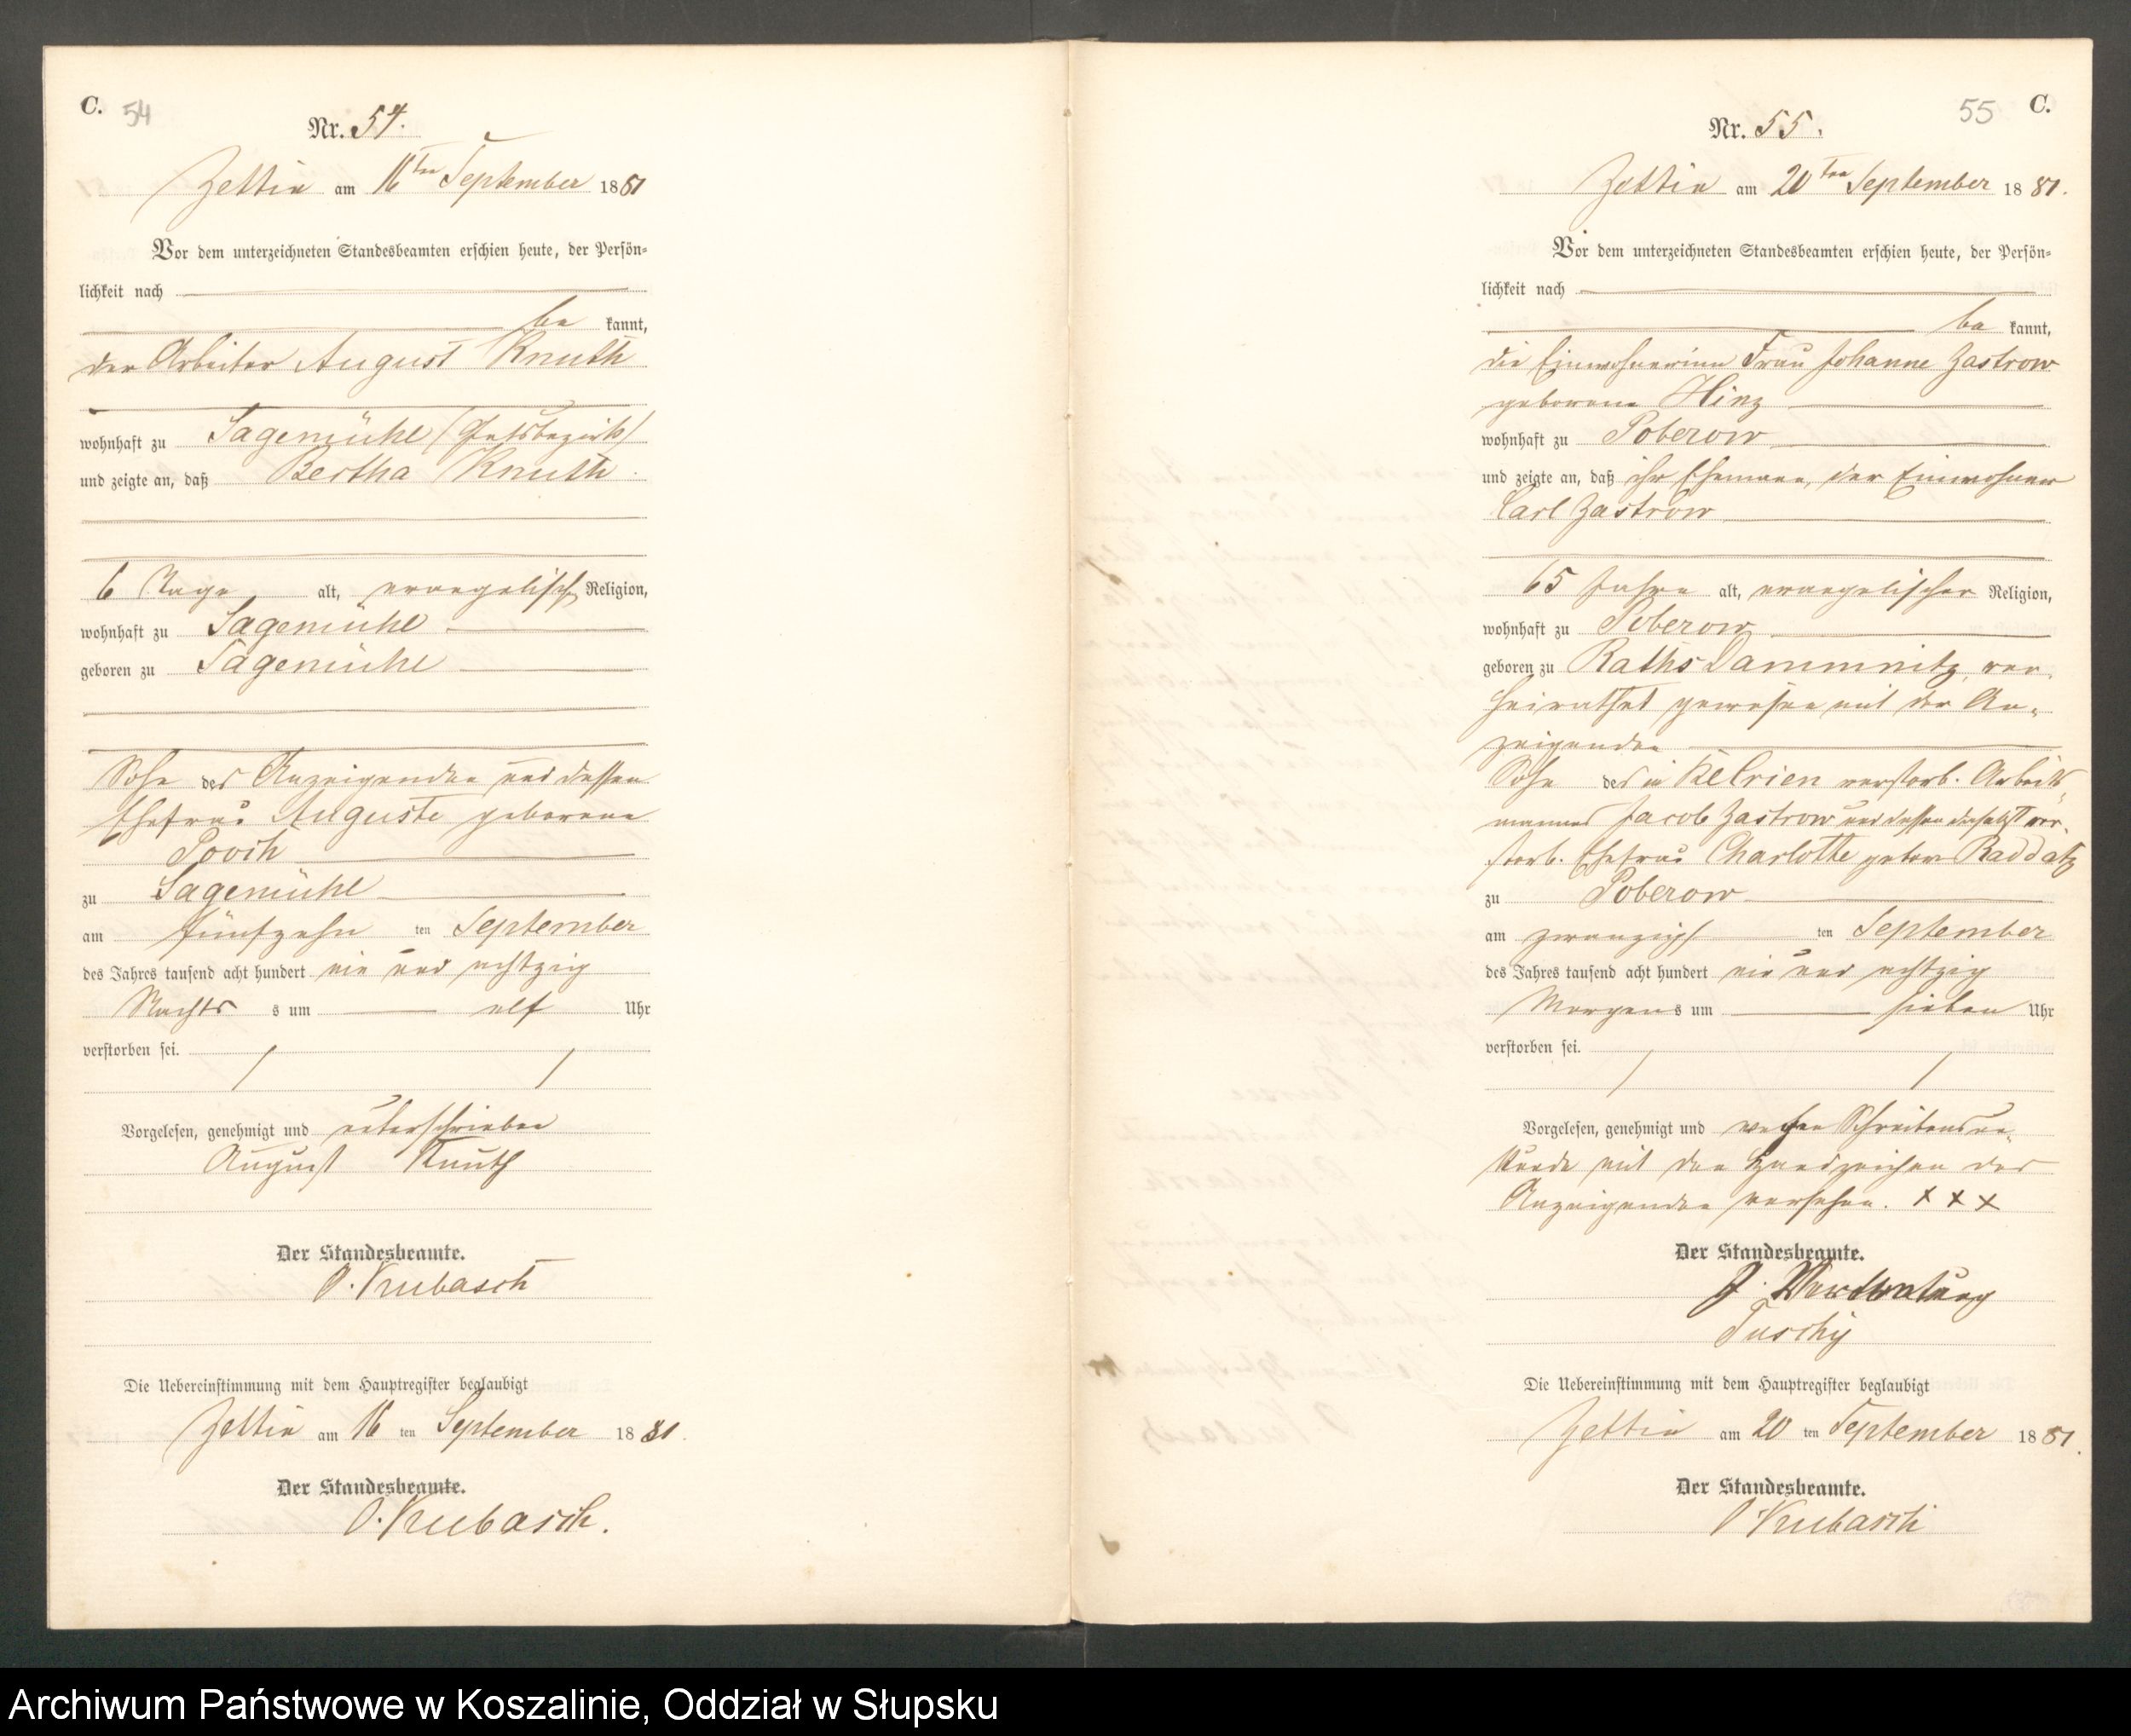 C. 54
Nr. 54.
Zettin am 16ten September 1881
Vor dem unterzeichneten Standesbeamten erschien heute, der Persön-
lichkeit nach
be kannt,
der Arbeiter August Knuth
wohnhaft zu Sagemühl (Gutsbezirk)
und zeigte an, daß Bertha Knuth
6 Tage alt, evangelisch Religion,
wohnhaft zu Sagemühl
geboren zu Sagemühl
des Anzeigenden und dessen
Ehefrau Auguste geborene
Pooch
zu Sagemühl
am fünfzehn ten September
des Jahres tausend acht hundert ein und achtzig
Nachts s um elf Uhr
verstorben sei.
Vorgelesen, genehmigt und unterschrieben
August Knuth
Der Standesbeamte.
O. Krubasch
Die Uebereinstimmung mit dem Hauptregister beglaubigt
Zettin am 16 ten September 1881.
Der Standesbeamte.
O. Krubasch.
55 C.
Nr. 55.
Zettin am 20ten September 1881.
Vor dem unterzeichneten Standesbeamten erschien heute, der Persön-
lichkeit nach
be kannt,
die Einwohnerinn Frau Johanne Zastrow
geborene Hinz
wohnhaft zu Poberow
und zeigte an, daß ihr Ehemann, der Einwohner
Carl Zastrow
65 Jahre alt, evangelischer Religion,
wohnhaft zu Poberow
geboren zu Raths Dammnitz, ver-
heirathet gewesen mit der An-
zeigenden
Sohn des in verstorb. Arbeits-
mannes Jacob Zastrow und dessen daselbst ver-
storb. Ehefrau Charlotte gebor. Raddatz
zu Poberow
am zwanzigst ten September
des Jahres tausend acht hundert ein und achtzig
Morgens um sieben Uhr
verstorben sei.
Vorgelesen, genehmigt und wegen Schreibensun-
kunde mit den Handzeichen der
Anzeigenden versehen. x x x
Der Standesbeamte.
Tuschy
Die Uebereinstimmung mit dem Hauptregister beglaubigt
Zettin am 20 ten September 1881.
Der Standesbeamte.
O Krubasch
Archiwum Państwowe w Koszalinie, Oddział w Słupsku